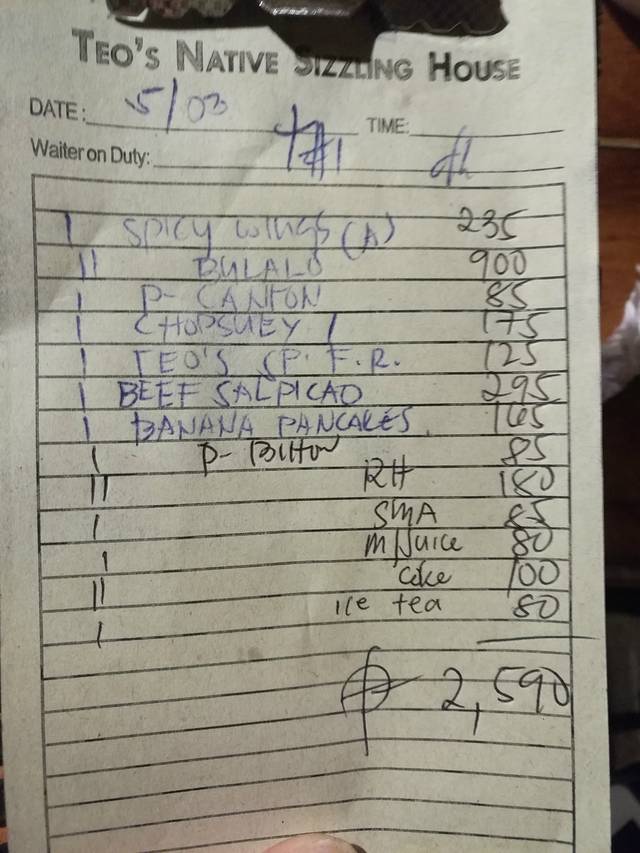 TEO'S NATIVE SIZZLING HOUSE
DATE: 5/03 TIME:
Waiter on Duty: T#1
1 SPICY WINGS (A) 235
11 BULALO 900
1 P- CANTON 85
1 CHOPSUEY 1 175
1 TEO'S SP. F.R. 125
1 BEEF SALPICAO 295
1 BANANA PANCAKES 165
1 P- BIHON 85
11 RH 180
1 SMA 85
1 M/Juice 80
11 Coke 100
1 ice tea 80
₱ 2,590